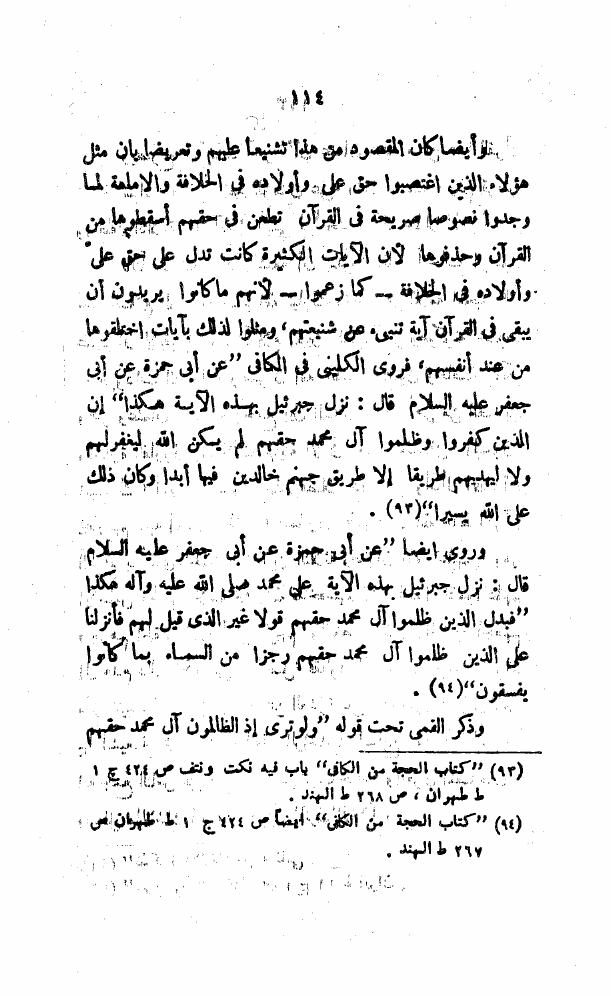 ١١٤
وأيضا كان المقصود من هذا تشنيعا عليهم وتعريضا بان مثل
هؤلاء الذين اغتصبوا حق على وأولاده في الخلافة والامامة لما
وجدوا نصوصا صريحة في القرآن تطعن في حقهم أسقطوها من
القرآن وحذفوها لان الآيات الكثيرة كانت تدل على حق على
وأولاده في الخلافة ــ كما زعموا ــ لأنهم ما كانوا يريدون أن
يبقى في القرآن آية تنبىء عن شنيعتهم، ومثلوا لذلك بآيات اختلقوها
من عند أنفسهم، فروى الكليني في الكافى "عن أبى حمزة عن أبى
جعفر عليه السلام قال : نزل جبرئيل بهذه الآية هكذا" إن
الذين كفروا وظلموا آل محمد حقهم لم يكن الله ليغفر لهم
ولا ليهديهم طريقا إلا طريق جهنم خالدين فيها أبدا وكان ذلك
على الله يسيرا"(٩٣) .
وروى ايضا "عن أبى حمزة عن أبى جعفر عليه السلام
قال : نزل جبرئيل بهذه الآية على محمد صلى الله عليه وآله هكذا
"فبدل الذين ظلموا آل محمد حقهم قولا غير الذى قيل لهم فأنزلنا
على الذين ظلموا آل محمد حقهم رجزا من السماء بما كانوا
يفسقون"(٩٤) .
وذكر القمى تحت قوله "ولو ترى إذ الظالمون آل محمد حقهم
(٩٣) "كتاب الحجة من الكافى" باب فيه نكت ونتف ص ٤٢٤ ج ١
ط طهران ، ص ٢٦٨ ط الهند .
(٩٤) "كتاب الحجة من الكافى" ايضاً ص ٤٢٤ ج ١ ط طهران ص
٢٦٧ ط الهند .